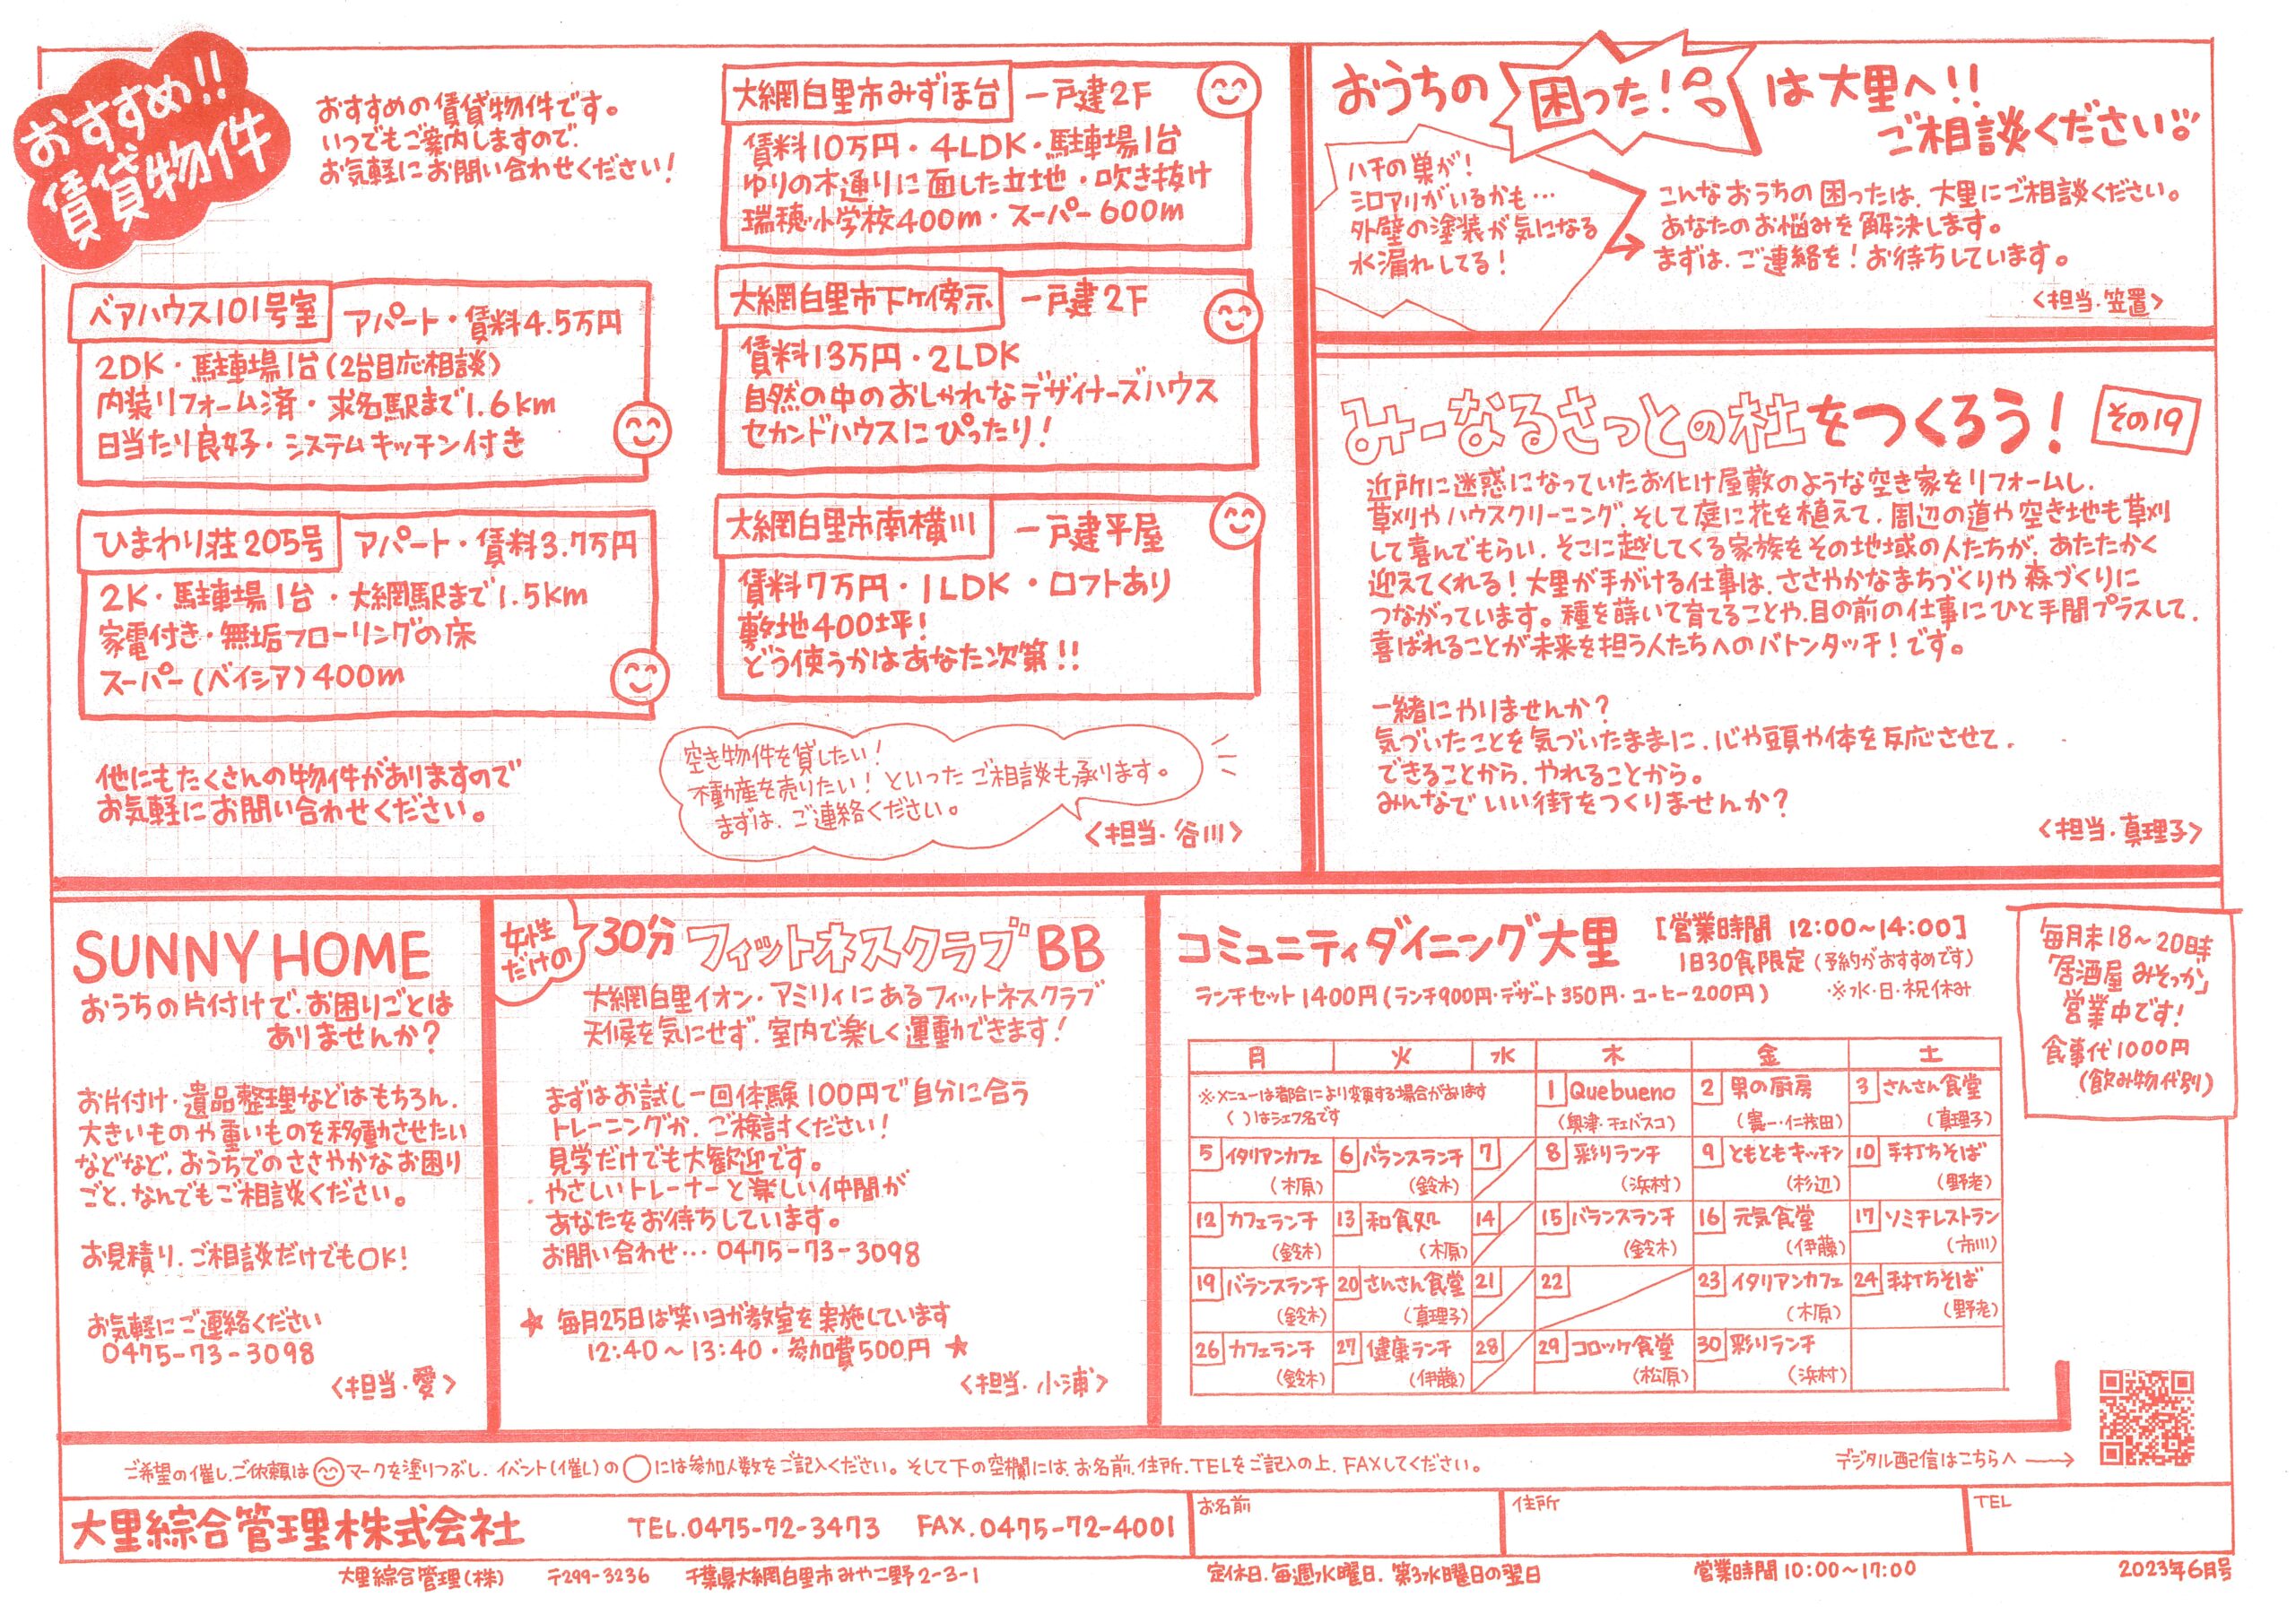 おすすめ!!
賃貸物件
おすすめの賃貸物件です。
いつでもご案内しますので、
お気軽にお問い合わせください!
ベアハウス101号室
アパート・賃料4.5万円
2DK・駐車場1台(2台目応相談)
内装リフォーム済・求名駅まで1.6km
日当たり良好・システムキッチン付き
ひまわり荘205号
アパート・賃料3.7万円
2K・駐車場1台・大網駅まで1.5km
家電付き・無垢フローリングの床
スーパー(ベイシア)400m
他にもたくさんの物件がありますので
お気軽にお問い合わせください。
大網白里市みずほ台
一戸建2F
賃料10万円・4LDK・駐車場1台
ゆりの木通りに面した立地・吹き抜け
瑞穂小学校400m・スーパー600m
大網白里市下ケ傍示
一戸建2F
賃料13万円・2LDK
自然の中のおしゃれなデザイナーズハウス
セカンドハウスにぴったり!
大網白里市南横川
一戸建平屋
賃料7万円・1LDK・ロフトあり
敷地400坪!
どう使うかはあなた次第!!
空き物件を貸したい!
不動産を売りたい!といったご相談も承ります。
まずは、ご連絡ください。
<担当・谷川>
おうちの困った!は大里へ!!
ご相談ください
ハチの巣が!
シロアリがいるかも…
外壁の塗装が気になる
水漏れしてる!
こんなおうちの困ったは、大里にご相談ください。
あなたのお悩みを解決します。
まずは、ご連絡を!お待ちしています。
<担当・笠置>
みーなるさっとの杜をつくろう!
その19
近所に迷惑になっていたお化け屋敷のような空き家をリフォームし、
草刈やハウスクリーニング、そして庭に花を植えて、周辺の道や空き地も草刈
して喜んでもらい、そこに越してくる家族をその地域の人たちが、あたたかく
迎えてくれる!大里が手がける仕事は、ささやかなまちづくりや森づくりに
つながっています。種を蒔いて育てることや、目の前の仕事にひと手間プラスして、
喜ばれることが未来を担う人たちへのバトンタッチ!です。
一緒にやりませんか?
気づいたことを気づいたままに、心や頭や体を反応させて、
できることから、やれることから。
みんなでいい街をつくりませんか?
<担当・真理子>
SUNNY HOME
おうちの片付けで、お困りごとは
ありませんか?
お片付け・遺品整理などはもちろん、
大きいものや重いものを移動させたい
などなど、おうちでのささやかなお困り
ごと、なんでもご相談ください。
お見積り、ご相談だけでもOK!
お気軽にご連絡ください
0475-73-3098
<担当・愛>
女性
だけの
30分 フィットネスクラブBB
大網白里イオン・アミリィにあるフィットネスクラブ
天候を気にせず、室内で楽しく運動できます!
まずはお試し一回体験100円で自分に合う
トレーニングか、ご検討ください!
見学だけでも大歓迎です。
やさしいトレーナーと楽しい仲間が
あなたをお待ちしています。
お問い合わせ…0475-73-3098
★ 毎月25日は笑いヨガ教室を実施しています
12:40~13:40・参加費500円 ★
<担当・小浦>
コミュニティダイニング大里
[営業時間 12:00~14:00]
1日30食限定(予約がおすすめです)
ランチセット1400円(ランチ900円・デザート350円・コーヒー200円)
※水・日・祝休み
毎月末18~20時
「居酒屋 みそっか」
営業中です!
食事代1000円
(飲み物代別)
月 火 水 木 金 土
※メニューは都合により変更する場合があります
( )はシェフ名です
1 Quebueno 2 男の厨房 3 さんさん食堂
(奥津・チェバスコ) (寛一・仁茂田) (真理子)
5 イタリアンカフェ 6 バランスランチ 7 8 彩りランチ 9 ともともキッチン 10 手打ちそば
(木原) (鈴木) (浜村) (杉辺) (野老)
12 カフェランチ 13 和食処 14 15 バランスランチ 16 元気食堂 17 ソミチレストラン
(鈴木) (木原) (鈴木) (伊藤) (市川)
19 バランスランチ 20 さんさん食堂 21 22 23 イタリアンカフェ 24 手打ちそば
(鈴木) (真理子) (木原) (野老)
26 カフェランチ 27 健康ランチ 28 29 コロッケ食堂 30 彩りランチ
(鈴木) (伊藤) (松原) (浜村)
ご希望の催し、ご依頼はマークを塗りつぶし、イベント(催し)の○には参加人数をご記入ください。そして下の空欄には、お名前、住所、TELをご記入の上、FAXしてください。
デジタル配信はこちらへ→
大里綜合管理株式会社 TEL.0475-72-3473 FAX.0475-72-4001
お名前 住所 TEL
大里綜合管理(株) 〒299-3236 千葉県大網白里市みやこ野2-3-1
定休日、毎週水曜日、第3水曜日の翌日
営業時間10:00~17:00
2023年6月号